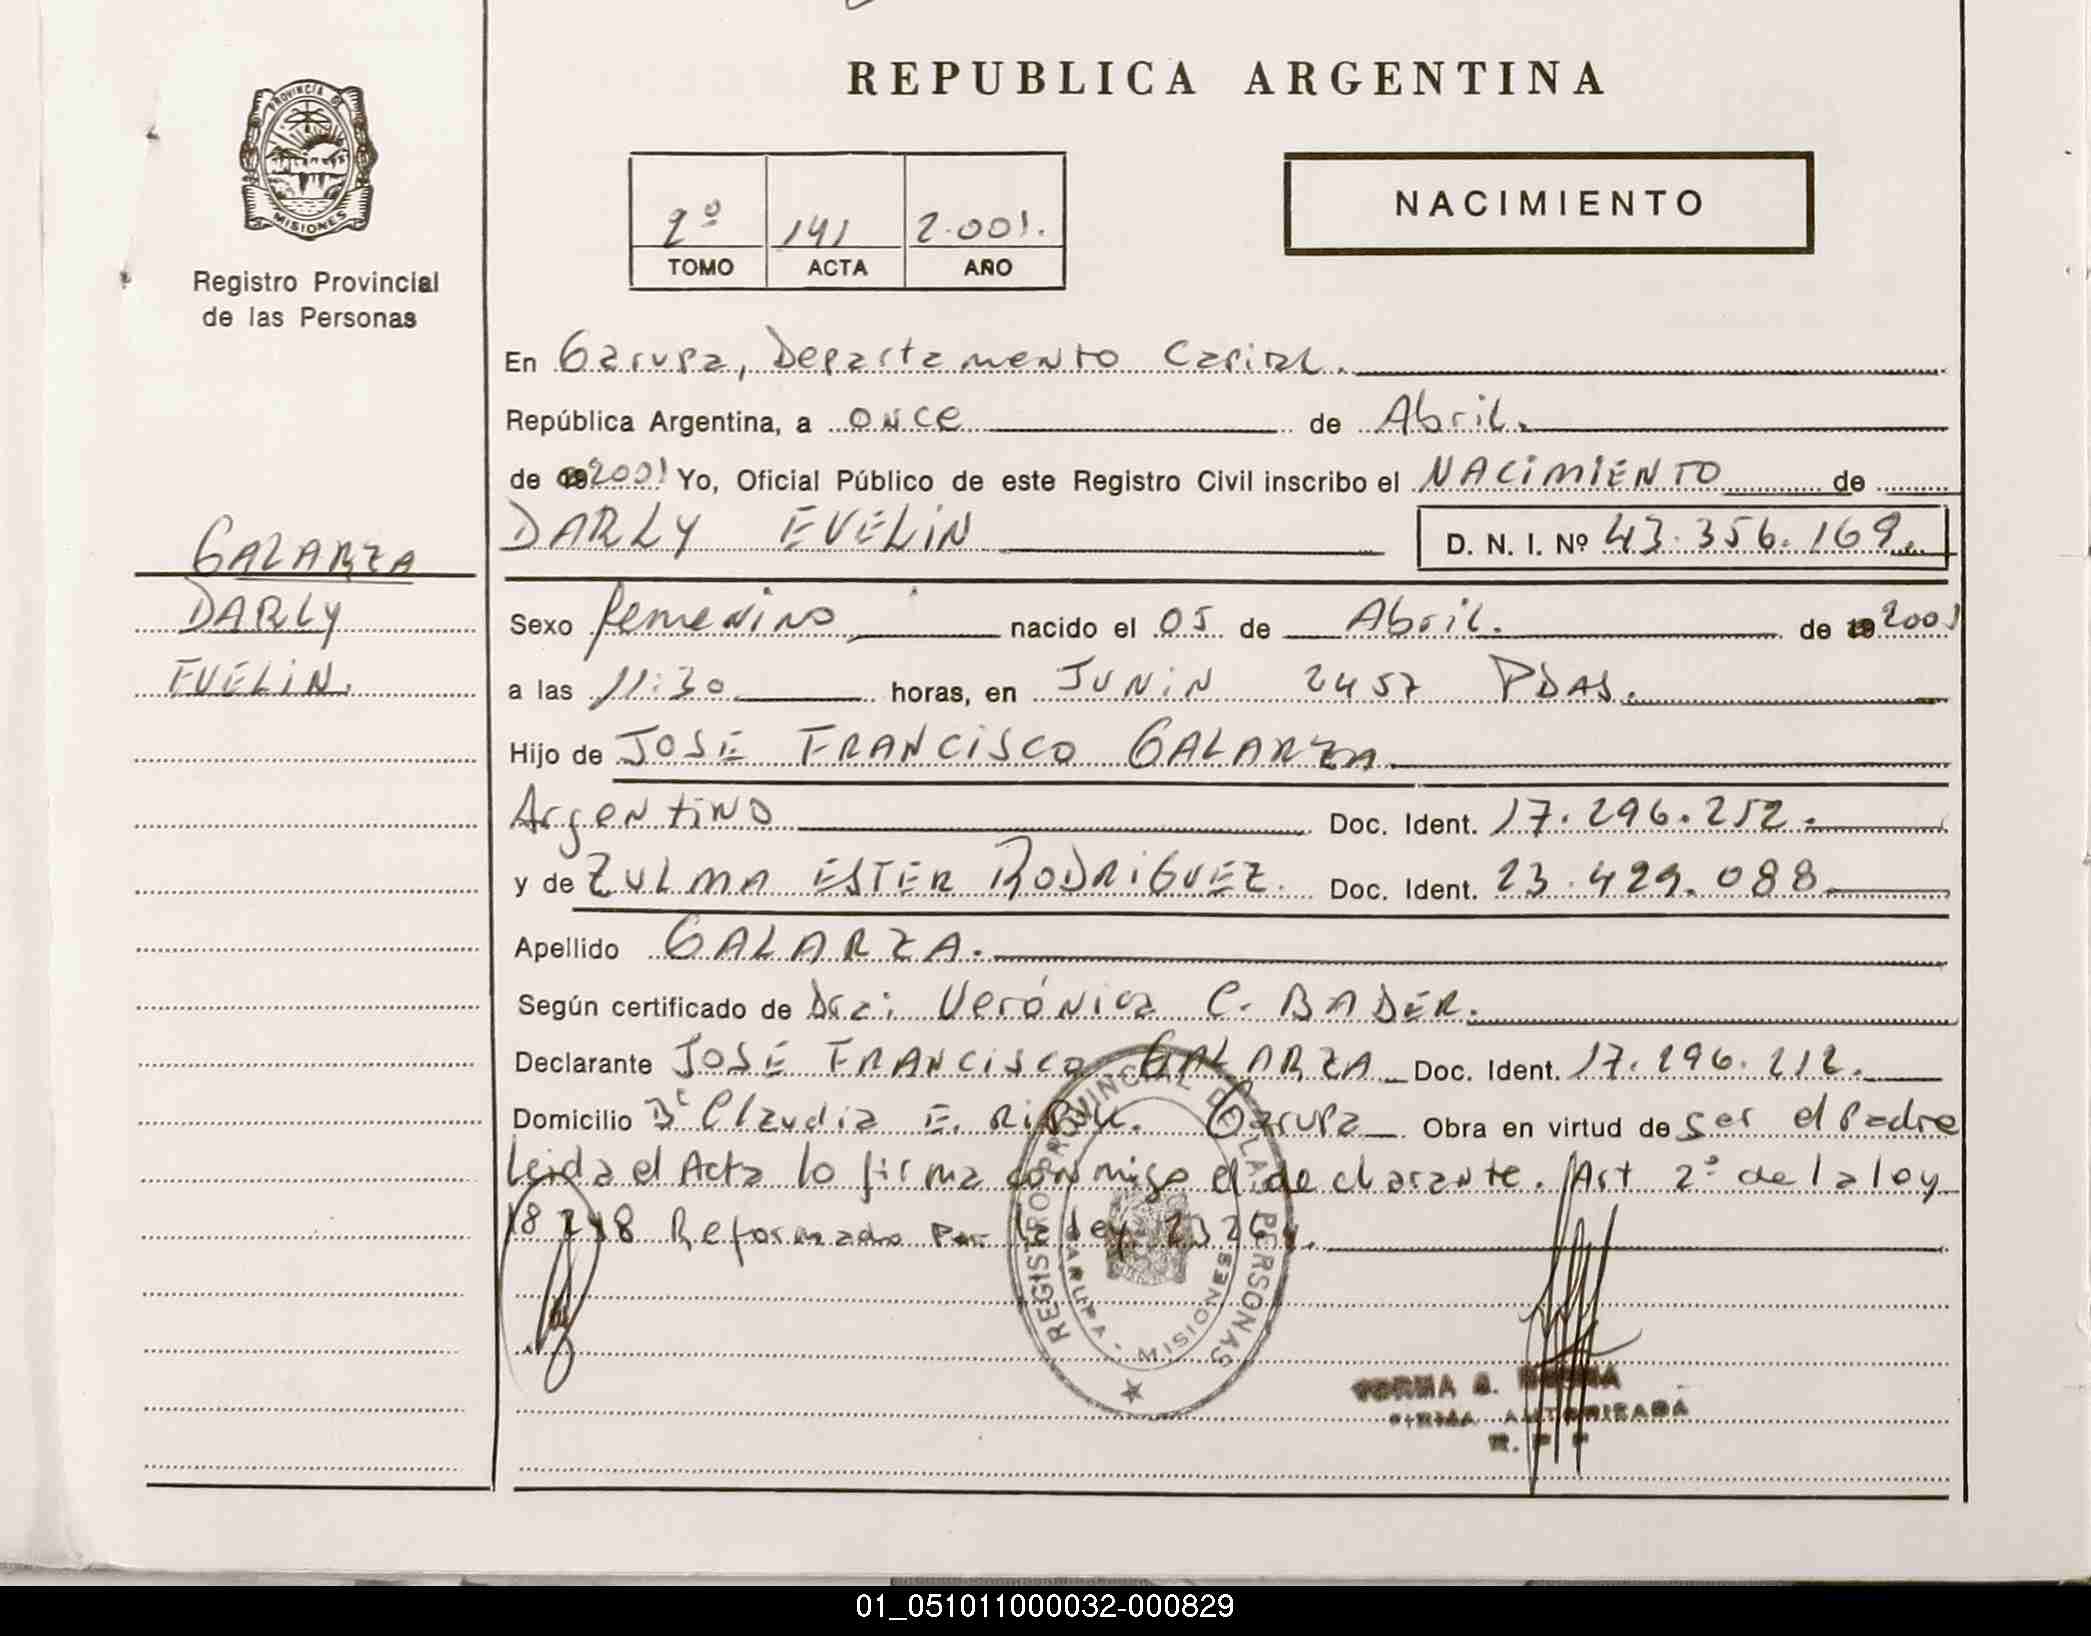 REPUBLICA ARGENTINA
PROVINCIA DE
MISIONES
Registro Provincial
de las Personas
2º 141 2.001.
TOMO ACTA AÑO
NACIMIENTO
En Garupa, Departamento Capital.
República Argentina, a once de Abril.
de 2001 Yo, Oficial Público de este Registro Civil inscribo el NACIMIENTO de
DARLY EVELIN D. N. I. Nº 43.356.169.
GALARZA
DARLY
EVELIN.
Sexo femenino, nacido el 05 de Abril. de 2001
a las 11:30 horas, en JUNIN 2457 PDAS.
Hijo de JOSE FRANCISCO GALARZA
Argentino Doc. Ident. 17.296.252.
y de ZULMA ESTER RODRIGUEZ. Doc. Ident. 23.429.088
Apellido GALARZA.
Según certificado de Dra: Verónica C. BADER.
Declarante JOSE FRANCISCO GALARZA Doc. Ident. 17.296.212.
Domicilio Bº Claudia E. Garupa Obra en virtud de ser el Padre
Leida el Acta lo firma conmigo el declarante. Art 2º de la ley
18248 Reformado Por la ley 23264.
REGISTRO PROVINCIAL DE LAS PERSONAS
GARUPA - MISIONES
FIRMA AUTORIZADA
01_051011000032-000829